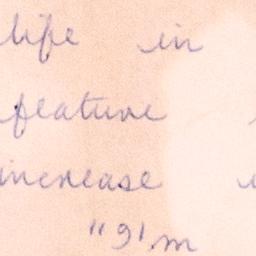 life in
feature
increase
"I'm